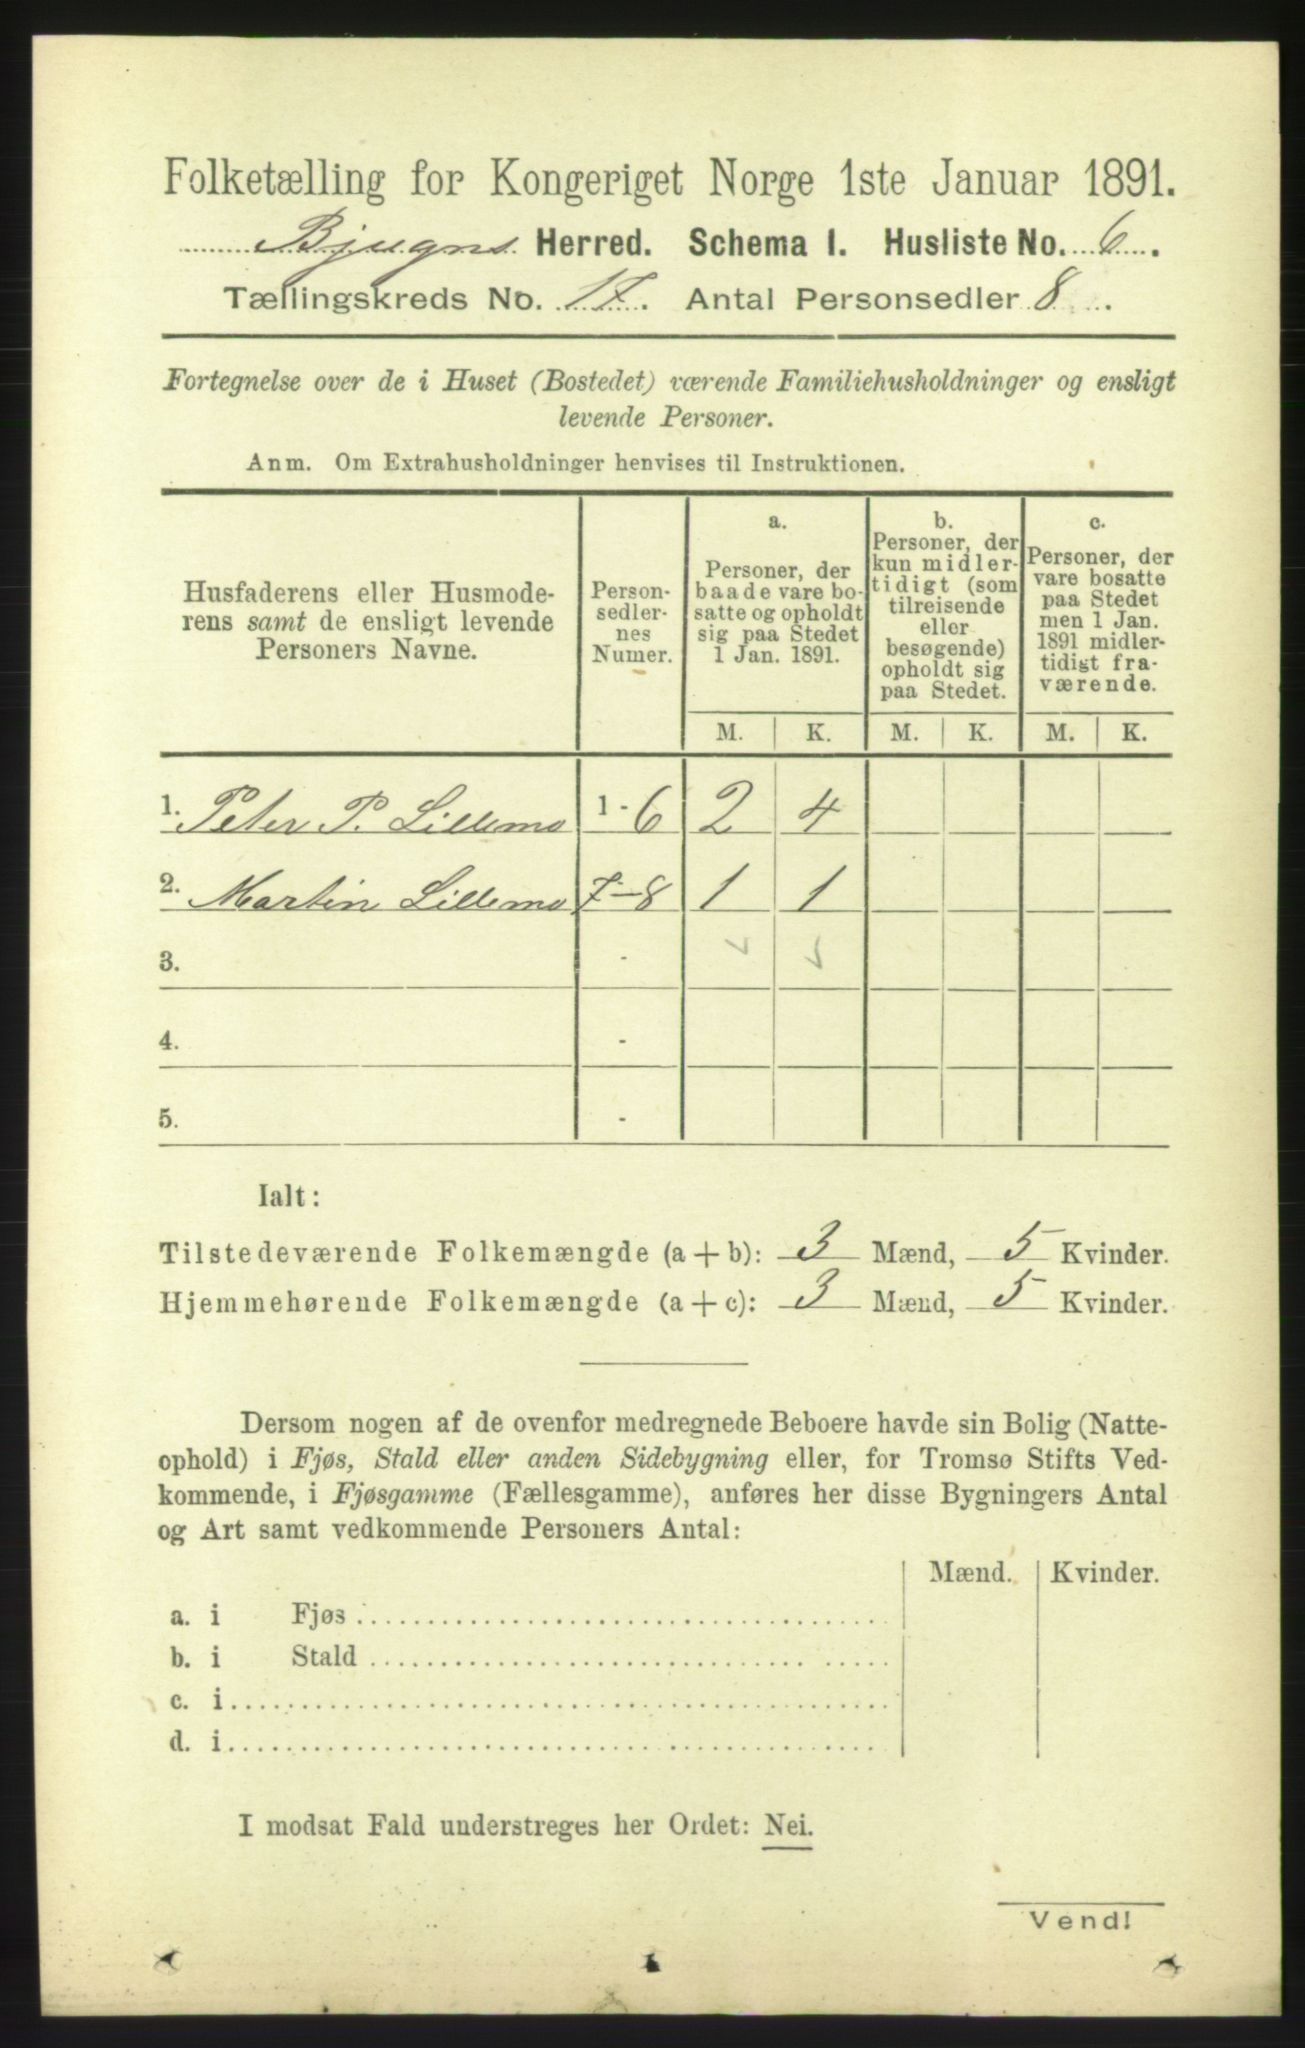 Folketælling for Kongeriget Norge 1ste Januar 1891.
Bjugns Herred. Schema I. Husliste No. 6.
Tællingskreds No. 17. Antal Personsedler 8.
Fortegnelse over de i Huset (Bostedet) værende Familiehusholdninger og ensligt
levende Personer.
Anm. Om Extrahusholdninger henvises til Instruktionen.
Husfaderens eller Husmode-
rens samt de ensligt levende
Personers Navne.
Person-
sedler-
nes
Numer.
a.
Personer, der
baade vare bo-
satte og opholdt
sig paa Stedet
1 Jan. 1891.
b.
Personer, der
kun midler-
tidigt (som
tilreisende
eller
besøgende)
opholdt sig
paa Stedet.
c.
Personer, der
vare bosatte
paa Stedet
men 1 Jan.
1891 midler-
tidigt fra-
værende.
M. K. M. K. M. K.
1. Peter P. Lillemo 1-6 2 4
2. Martin Lillemo 7-8 1 1
3. -
4. -
5. -
Ialt:
Tilstedeværende Folkemængde (a + b): 3 Mænd, 5 Kvinder.
Hjemmehørende Folkemængde (a + c): 3 Mænd, 5 Kvinder.
Dersom nogen af de ovenfor medregnede Beboere havde sin Bolig (Natte-
ophold) i Fjøs, Stald eller anden Sidebygning eller, for Tromsø Stifts Ved-
kommende, i Fjøsgamme (Fællesgamme), anføres her disse Bygningers Antal
og Art samt vedkommende Personers Antal:
Mænd. Kvinder.
a. i Fjøs
b. i Stald
c. i
d. i
I modsat Fald understreges her Ordet: Nei.
Vend!